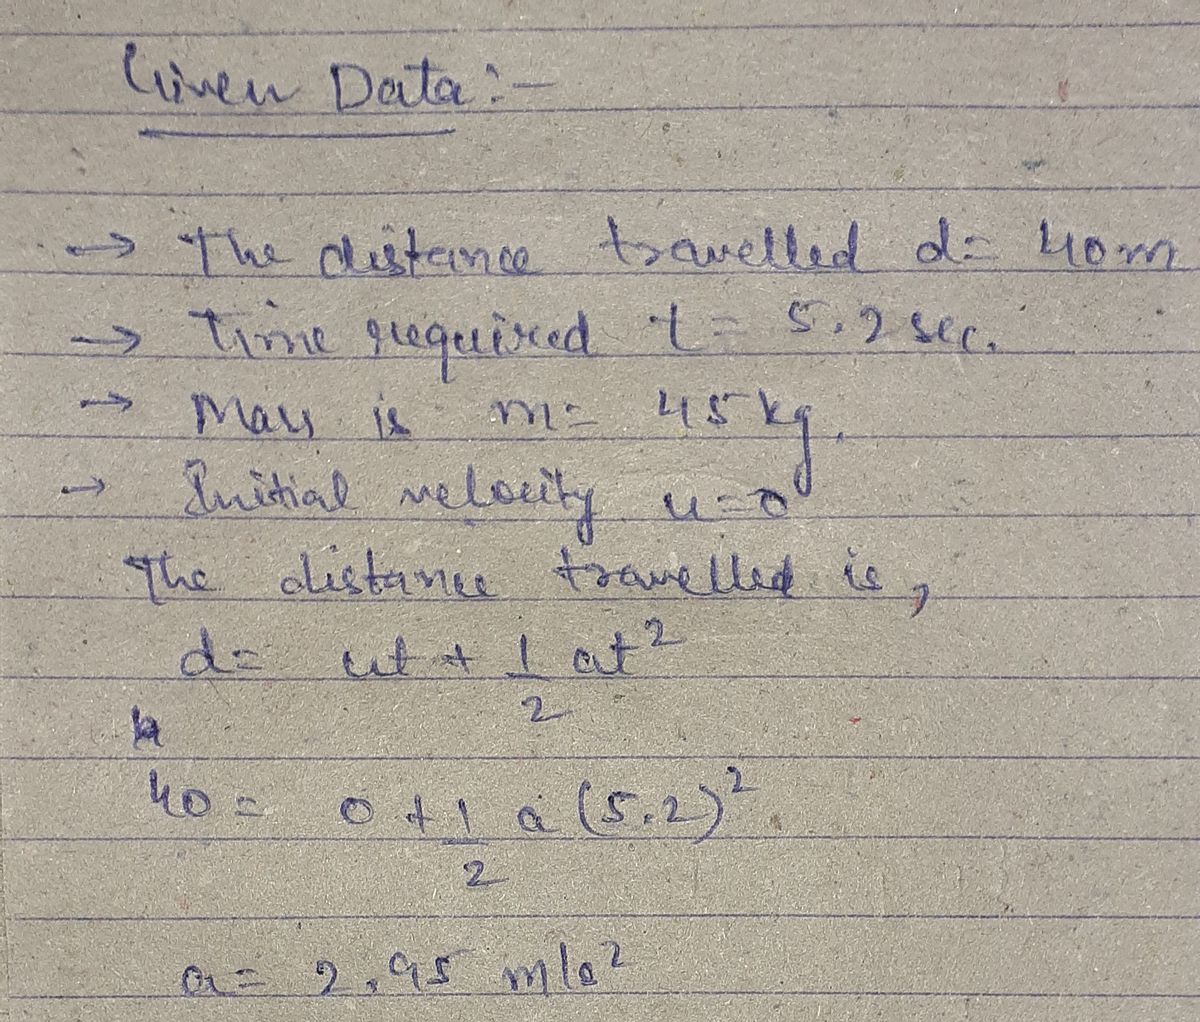 Given Data:-
→ The distance travelled d= 40m
→ Time required t= 5.2 sec.
→ Mass is m= 45 kg.
→ Initial velocity u=0
The distance travelled is,
d= ut + 1/2 at²
40= 0+1/2 a (5.2)²
a= 2.95 m/s²